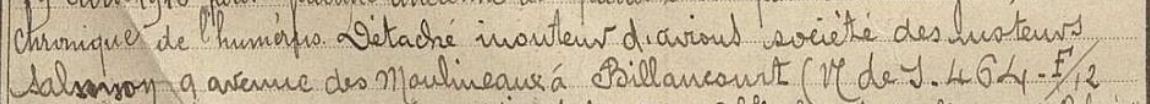 chronique de l'humérus. Détaché monteur d'avions société des moteurs
Salmson 9 avenue des Moulineaux à Billancourt (N de S. 464-F/12